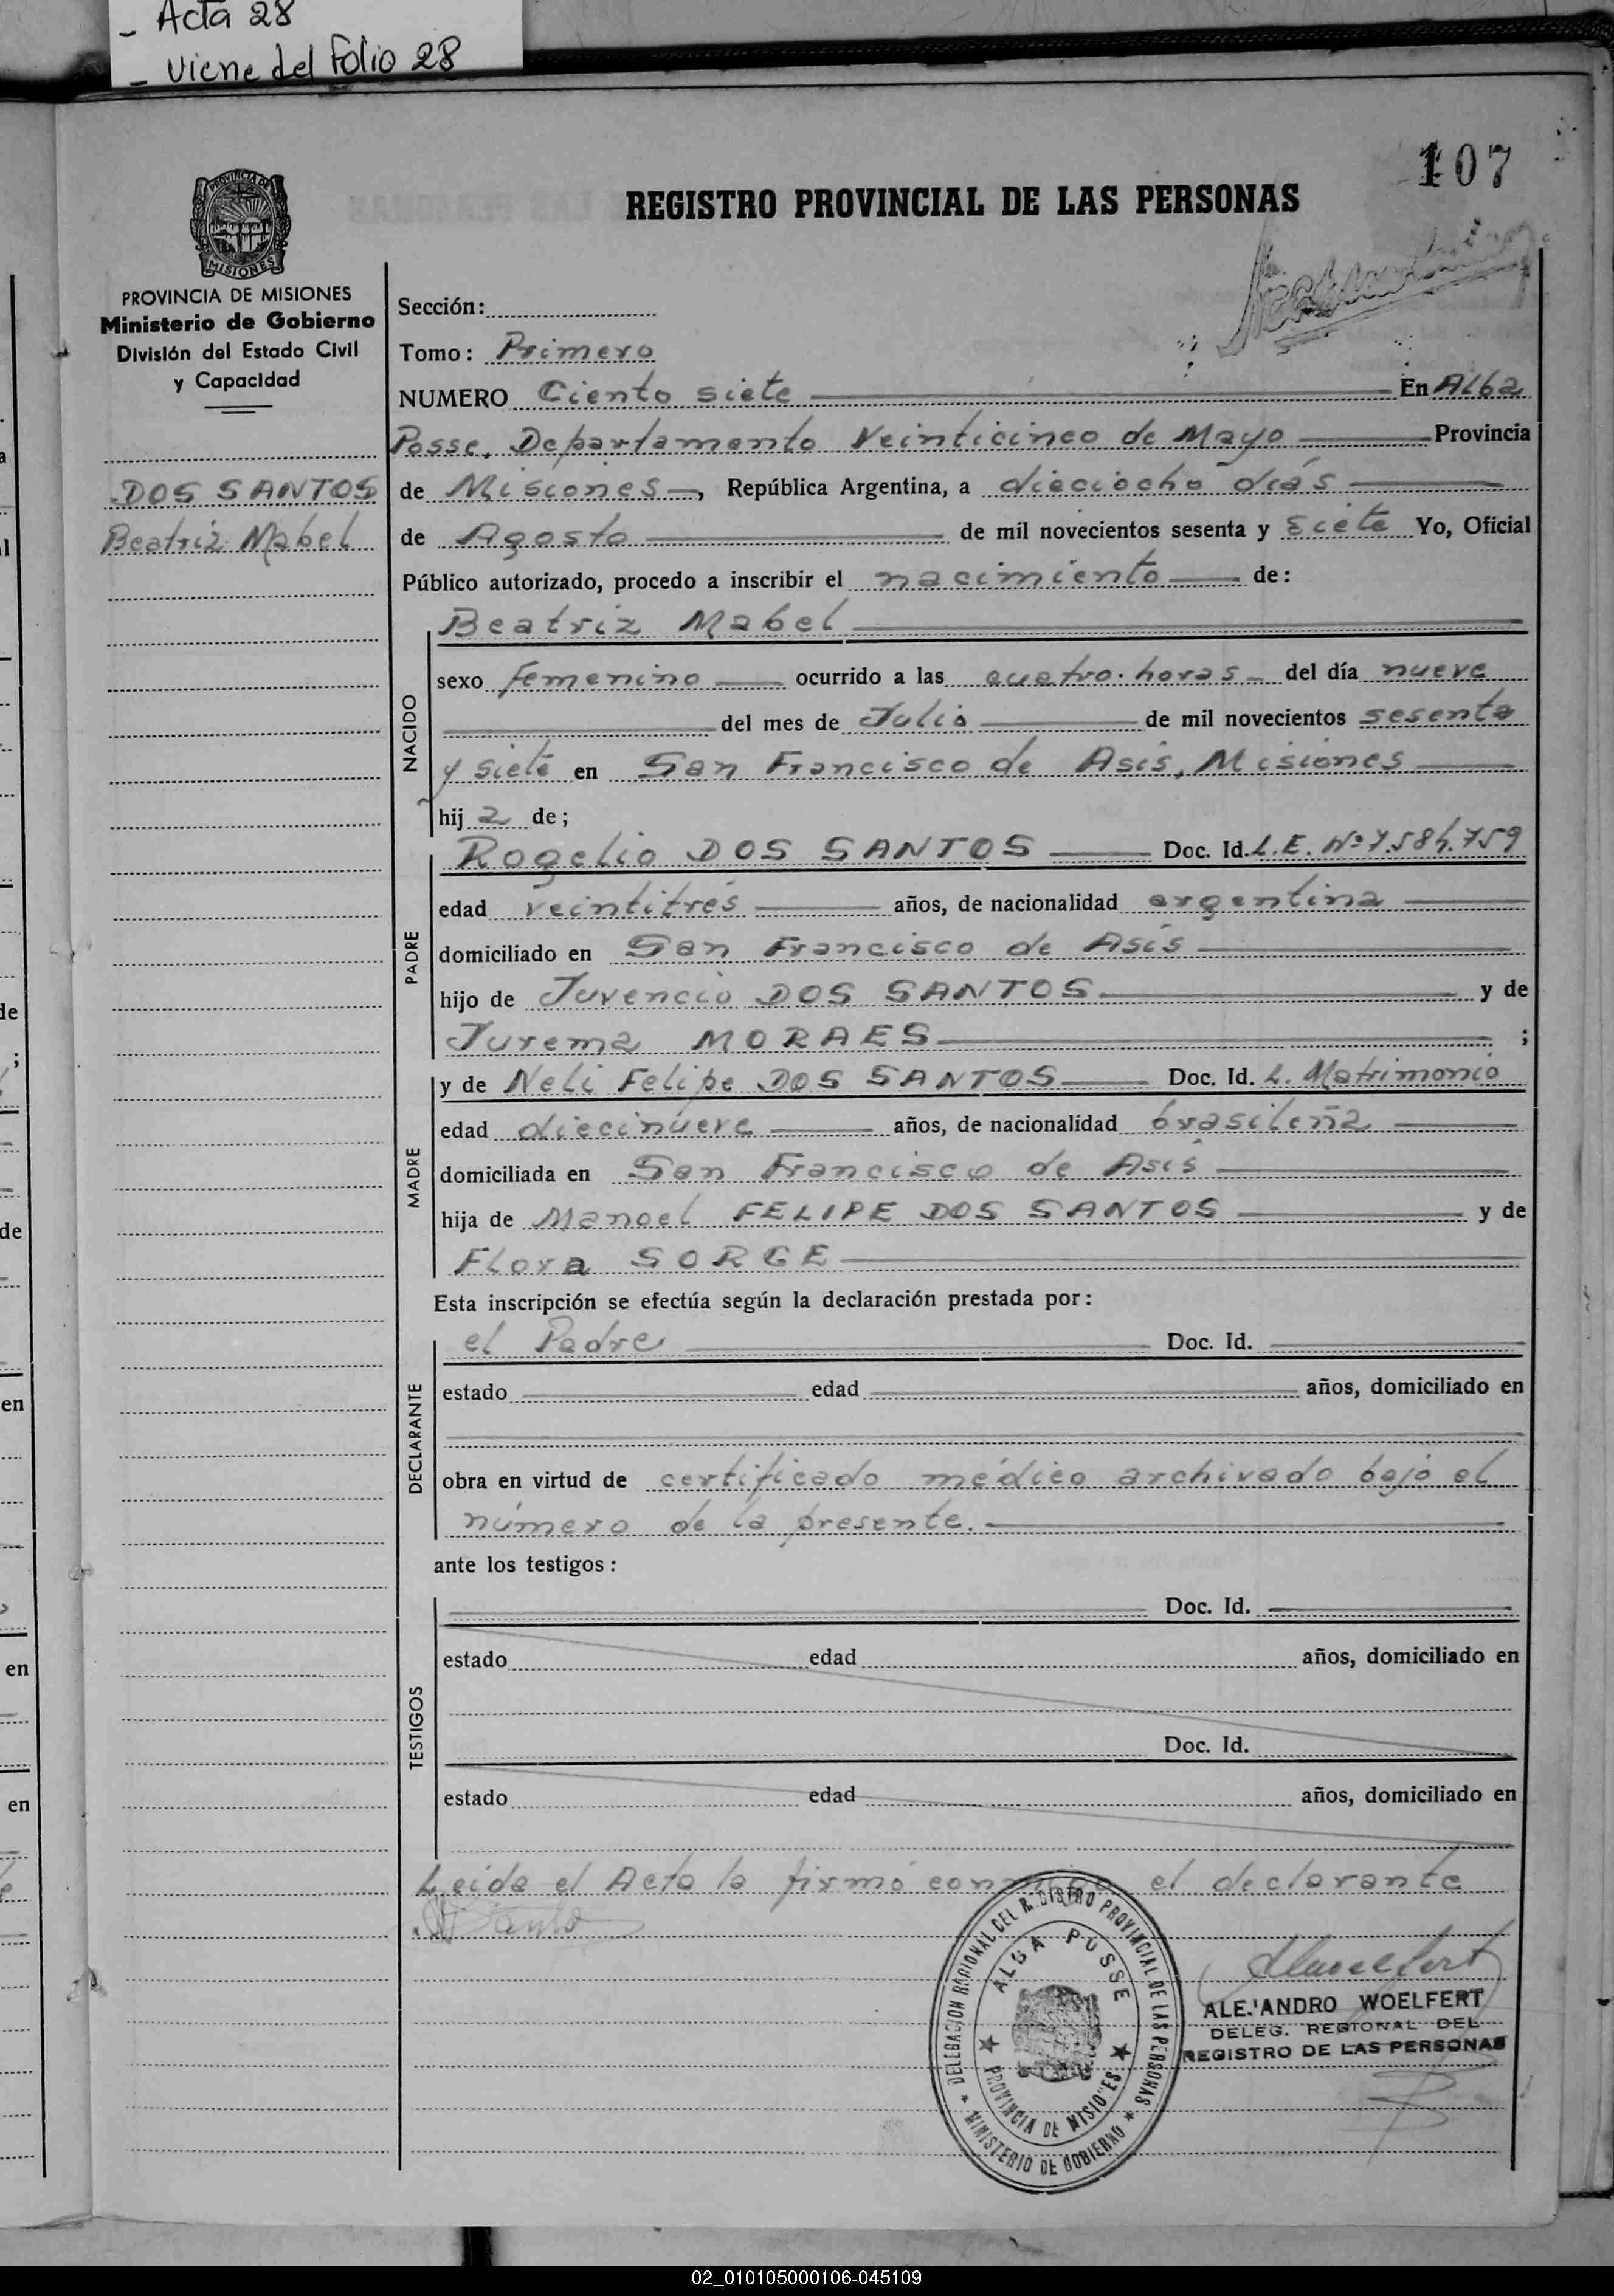 - Acta 28
- Viene del Folio 28
107
REGISTRO PROVINCIAL DE LAS PERSONAS
PROVINCIA DE MISIONES
PROVINCIA DE MISIONES
Ministerio de Gobierno
División del Estado Civil
y Capacidad
DOS SANTOS
Beatriz Mabel
Sección:
Tomo: Primero
NUMERO Ciento siete En Alba
Posse, Departamento Veinticinco de Mayo Provincia
de Misiones, República Argentina, a dieciocho días
de Agosto de mil novecientos sesenta y siete Yo, Oficial
Público autorizado, procedo a inscribir el nacimiento de:
Beatriz Mabel
NACIDO
sexo femenino ocurrido a las cuatro horas del día nueve
del mes de Julio de mil novecientos sesenta
y siete en San Francisco de Asís, Misiones
hija de;
PADRE
Rogelio DOS SANTOS Doc. Id. L.E. Nº 7.584.759
edad veintitrés años, de nacionalidad argentina
domiciliado en San Francisco de Asís
hijo de Juvencio DOS SANTOS y de
Jurema MORAES ;
MADRE
y de Neli Felipe DOS SANTOS Doc. Id. L. Matrimonio
edad diecinueve años, de nacionalidad brasileña
domiciliada en San Francisco de Asís
hija de Manoel FELIPE DOS SANTOS y de
Flora SORGE
Esta inscripción se efectúa según la declaración prestada por:
DECLARANTE
el Padre Doc. Id.
estado edad años, domiciliado en
obra en virtud de certificado médico archivado bajo el
número de la presente.
ante los testigos:
TESTIGOS
Doc. Id.
estado edad años, domiciliado en
Doc. Id.
estado edad años, domiciliado en
Leída el Acta la firmó conmigo el declarante
DELEGACION REGIONAL DEL REGISTRO PROVINCIAL DE LAS PERSONAS
ALBA POSSE
PROVINCIA DE MISIONES
MINISTERIO DE GOBIERNO
ALEJANDRO WOELFERT
DELEG. REGIONAL DEL
REGISTRO DE LAS PERSONAS
02_010105000106-045109